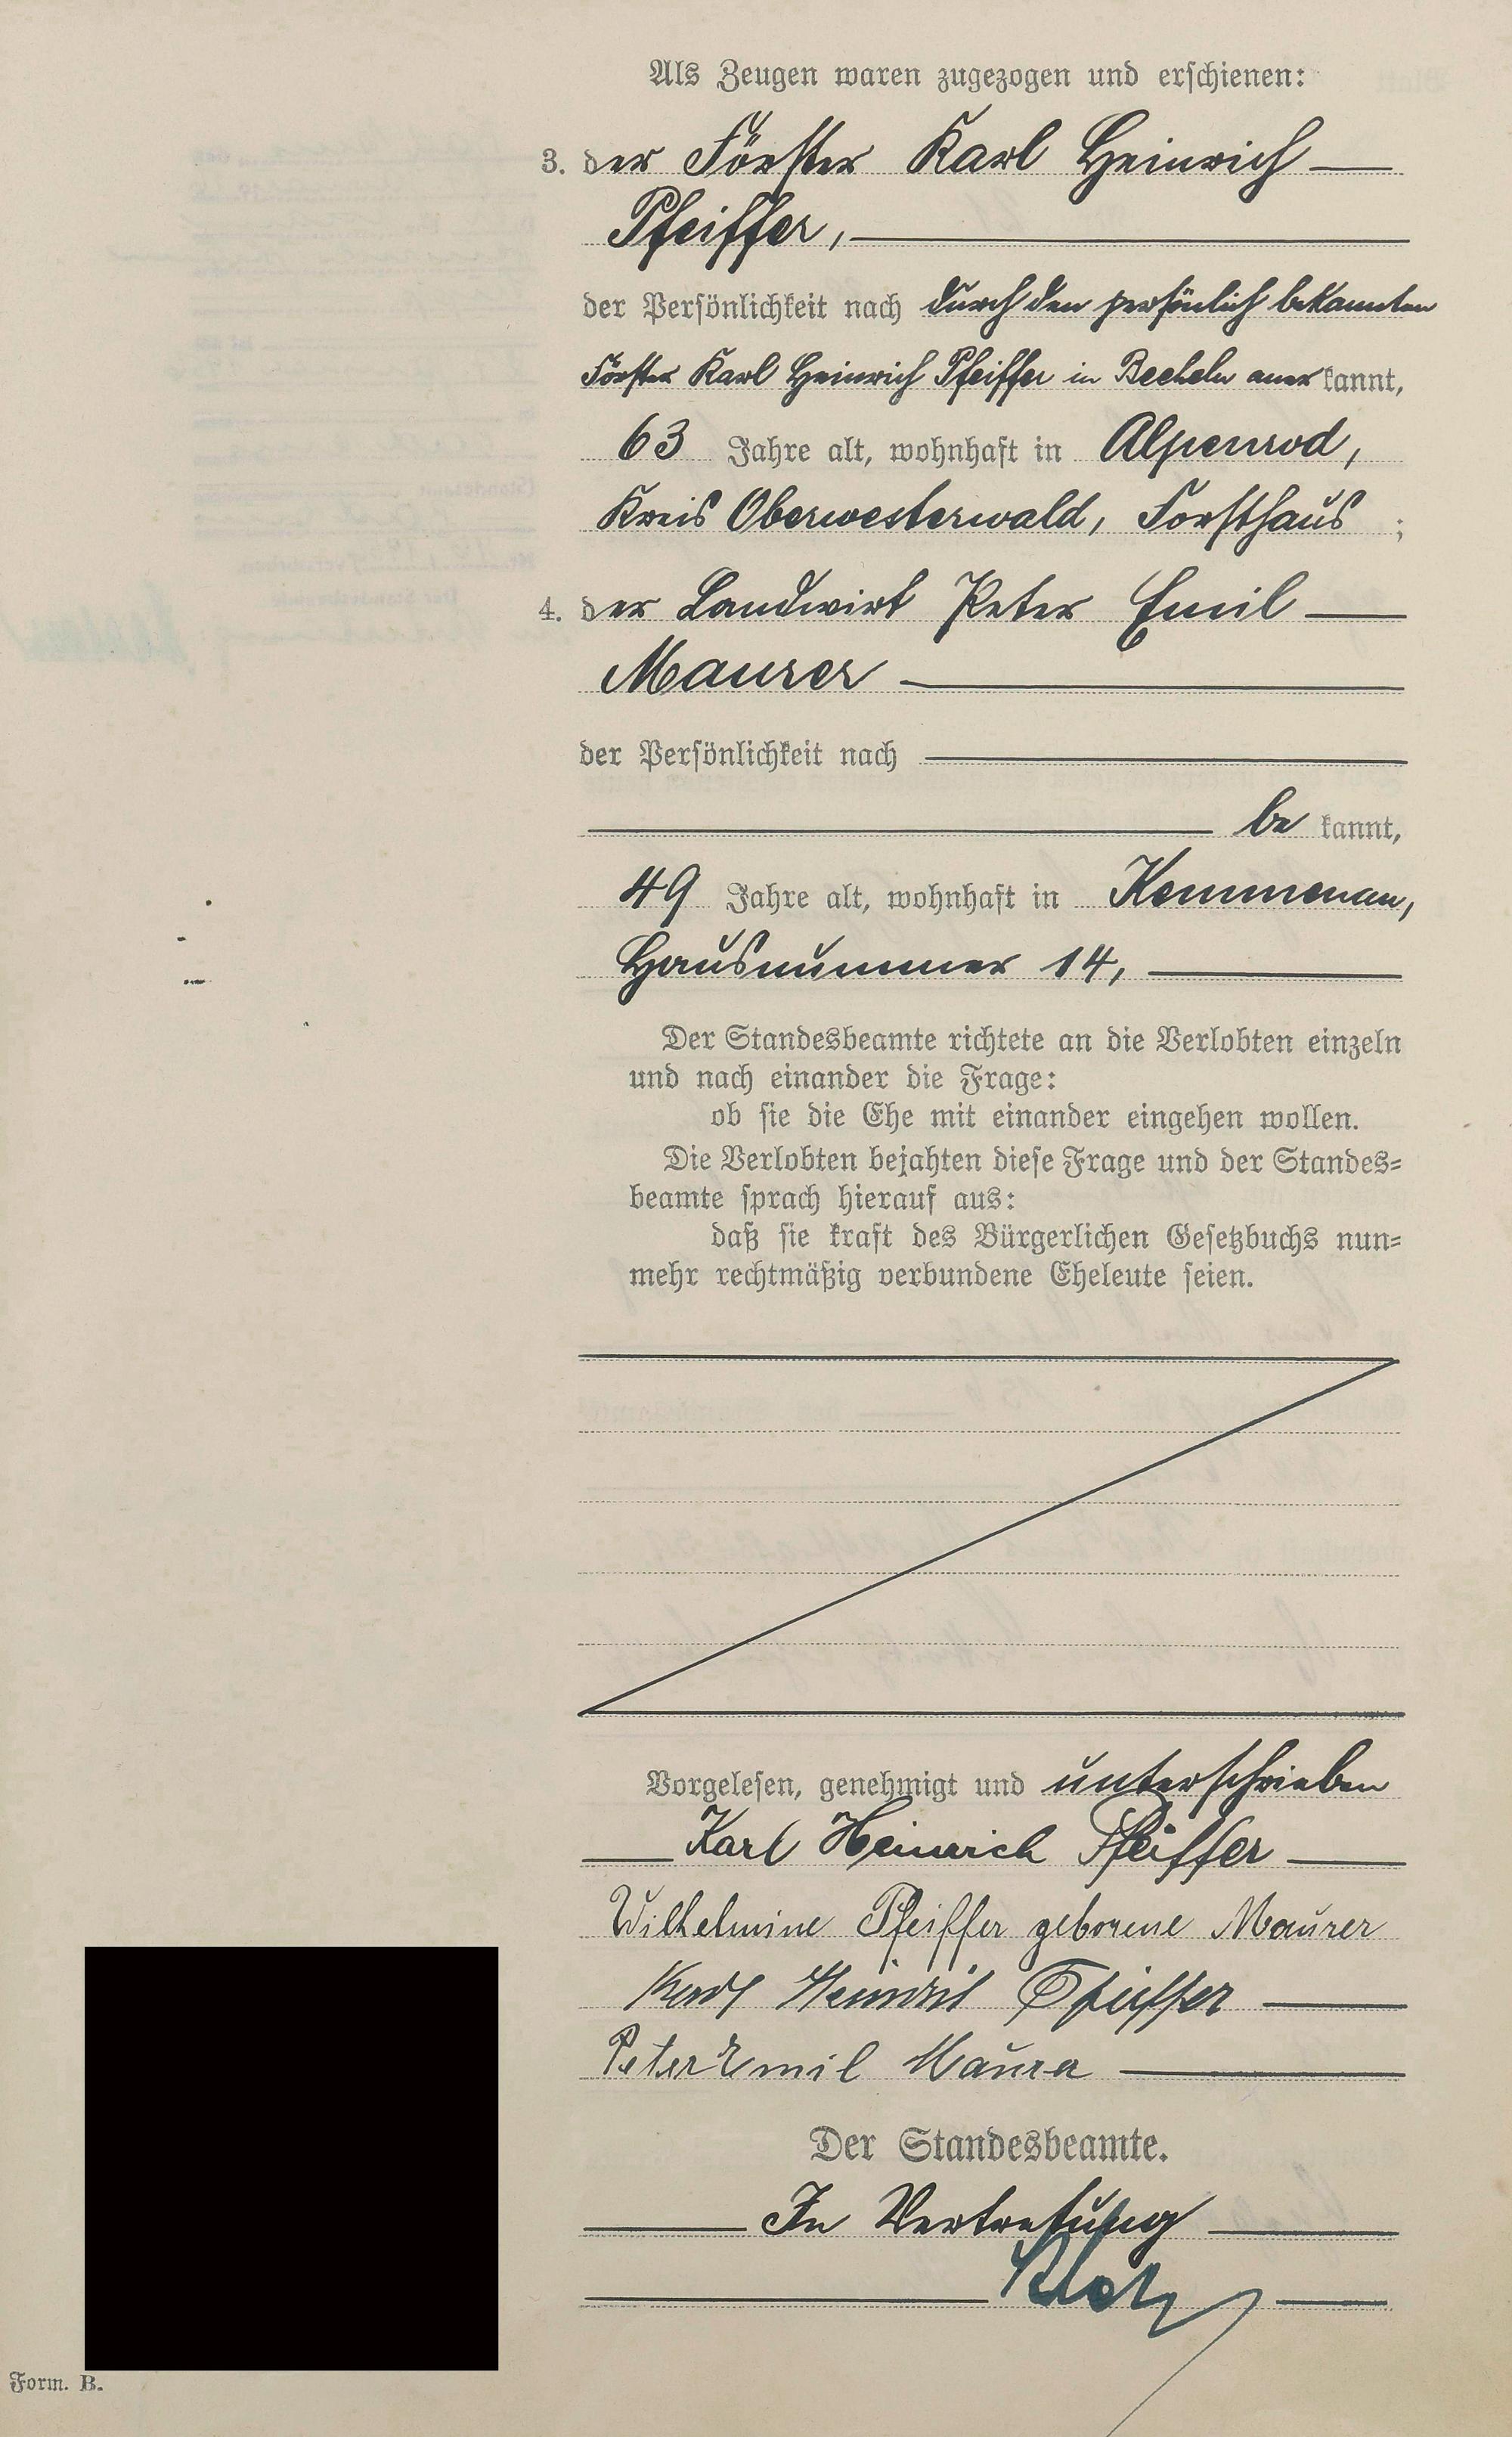 Als Zeugen waren zugezogen und erschienen:
3. der Förster Karl Heinrich
Pfeiffer,
der Persönlichkeit nach durch den persönlich bekannten
Förster Karl Heinrich Pfeiffer in Becheln anerkannt,
63 Jahre alt, wohnhaft in Alpenrod,
Kreis Oberwesterwald, Forsthaus ;
4. der Landwirt Peter Emil
Maurer
der Persönlichkeit nach
bekannt,
49 Jahre alt, wohnhaft in Kemmenau,
Hausnummer 14,
Der Standesbeamte richtete an die Verlobten einzeln
und nach einander die Frage:
ob sie die Ehe mit einander eingehen wollen.
Die Verlobten bejahten diese Frage und der Standes=
beamte sprach hierauf aus:
daß sie kraft des Bürgerlichen Gesetzbuchs nun=
mehr rechtmäßig verbundene Eheleute seien.
Vorgelesen, genehmigt und unterschrieben
Karl Heinrich Pfeiffer
Wilhelmine Pfeiffer geborene Maurer
Karl Heinrich Pfeiffer
Peter Emil Maurer
Der Standesbeamte.
In Vertretung
Form. B.